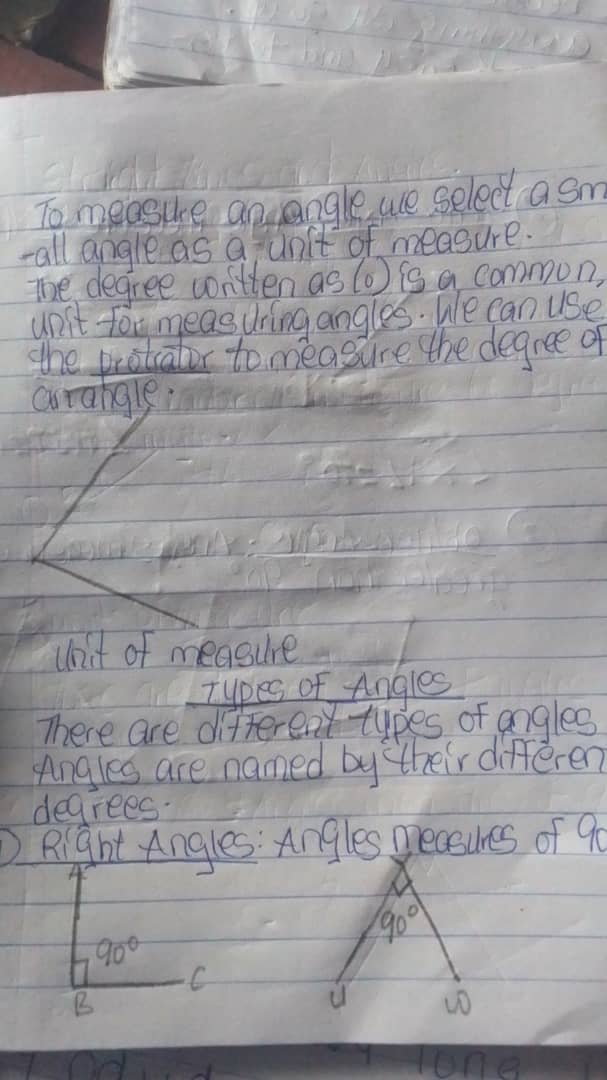 To measure an angle we select a sm
-all angle as a unit of measure.
The degree written as (o) is a common,
unit for measuring angles. We can use
the protrator to measure the degree of
an angle.
Unit of measure
Types of Angles
There are different types of angles
Angles are named by their differen
degrees.
) Right Angles: Angles measures of 90
A
90°
B
C
90°
U
W